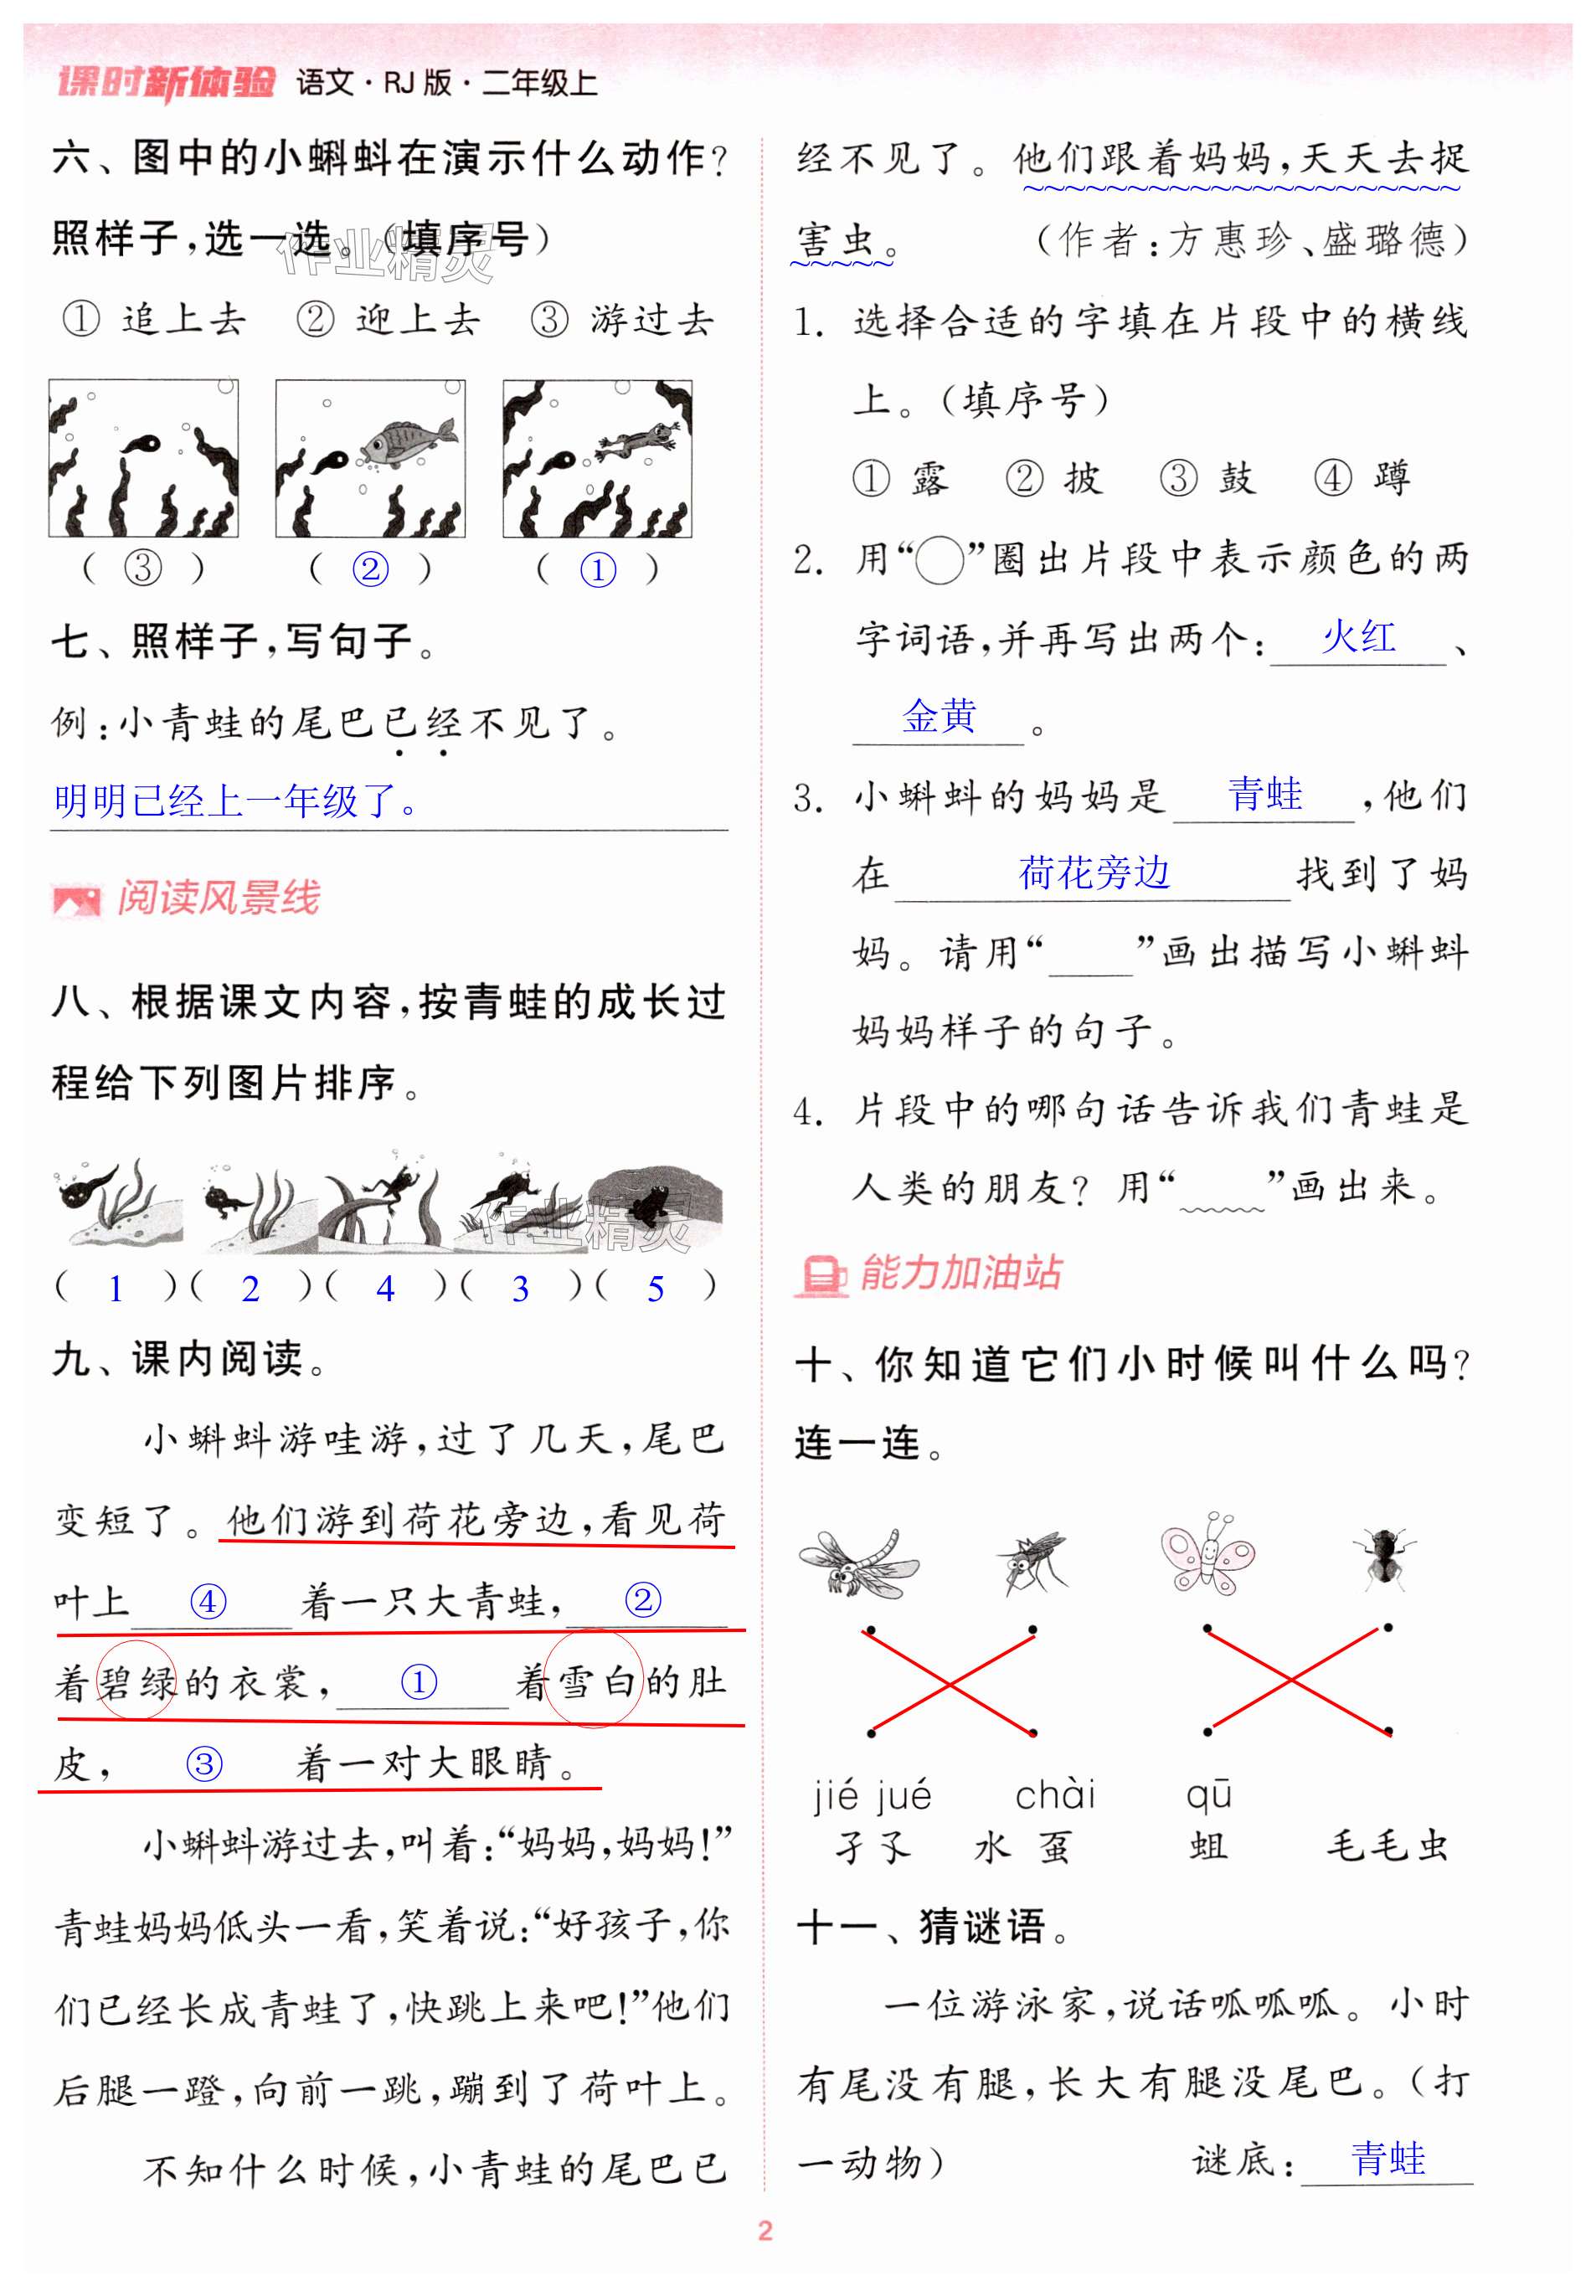 课时新体验 语文·RJ版·二年级上
六、图中的小蝌蚪在演示什么动作?
照样子,选一选。(填序号)
作业精灵
① 追上去 ② 迎上去 ③ 游过去
( ③ ) ( ② ) ( ① )
七、照样子,写句子。
例:小青蛙的尾巴已经不见了。
明明已经上一年级了。
阅读风景线
八、根据课文内容,按青蛙的成长过
程给下列图片排序。
作业精灵
( 1 )( 2 )( 4 )( 3 )( 5 )
九、课内阅读。
小蝌蚪游哇游,过了几天,尾巴
变短了。他们游到荷花旁边,看见荷
叶上 ④ 着一只大青蛙, ②
着碧绿的衣裳, ① 着雪白的肚
皮, ③ 着一对大眼睛。
小蝌蚪游过去,叫着:“妈妈,妈妈!”
青蛙妈妈低头一看,笑着说:“好孩子,你
们已经长成青蛙了,快跳上来吧!”他们
后腿一蹬,向前一跳,蹦到了荷叶上。
不知什么时候,小青蛙的尾巴已
经不见了。他们跟着妈妈,天天去捉
害虫。 (作者:方惠珍、盛璐德)
1. 选择合适的字填在片段中的横线
上。(填序号)
① 露 ② 披 ③ 鼓 ④ 蹲
2. 用“○”圈出片段中表示颜色的两
字词语,并再写出两个: 火红 、
金黄 。
3. 小蝌蚪的妈妈是 青蛙 ,他们
在 荷花旁边 找到了妈
妈。请用“____”画出描写小蝌蚪
妈妈样子的句子。
4. 片段中的哪句话告诉我们青蛙是
人类的朋友? 用“﹏﹏”画出来。
能力加油站
十、你知道它们小时候叫什么吗?
连一连。
jié jué chài qū
孑孓 水虿 蛆 毛毛虫
十一、猜谜语。
一位游泳家,说话呱呱呱。小时
有尾没有腿,长大有腿没尾巴。(打
一动物) 谜底: 青蛙
2